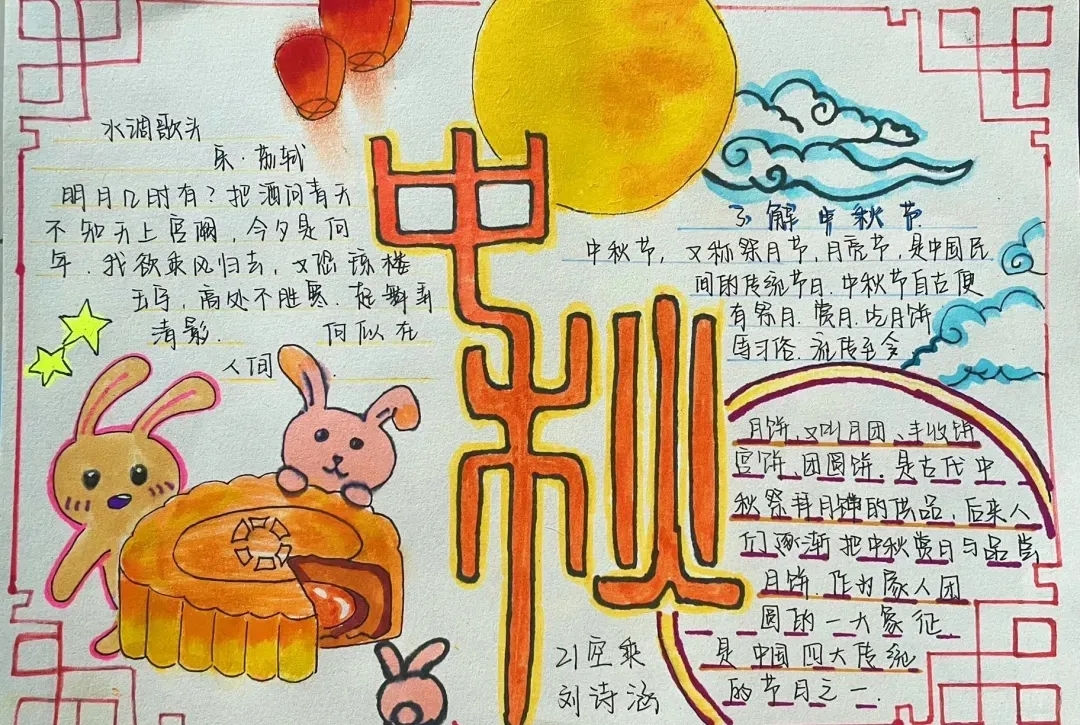 水调歌头
宋·苏轼
明月几时有？把酒问青天
不知天上宫阙，今夕是何
年．我欲乘风归去，又恐琼楼
玉宇，高处不胜寒．起舞弄
清影． 何似在
人间．
中秋
了解中秋节
中秋节，又称祭月节，月亮节，是中国民
间的传统节日．中秋节自古便
有祭月．赏月．吃月饼
等习俗．流传至今
月饼、又叫月团、丰收饼
宫饼、团圆饼．是古代中
秋祭拜月神的供品，后来人
们逐渐把中秋赏月与品尝
月饼．作为家人团
圆的一大象征
是中国四大传统
的节日之一．
21空乘
刘诗涵